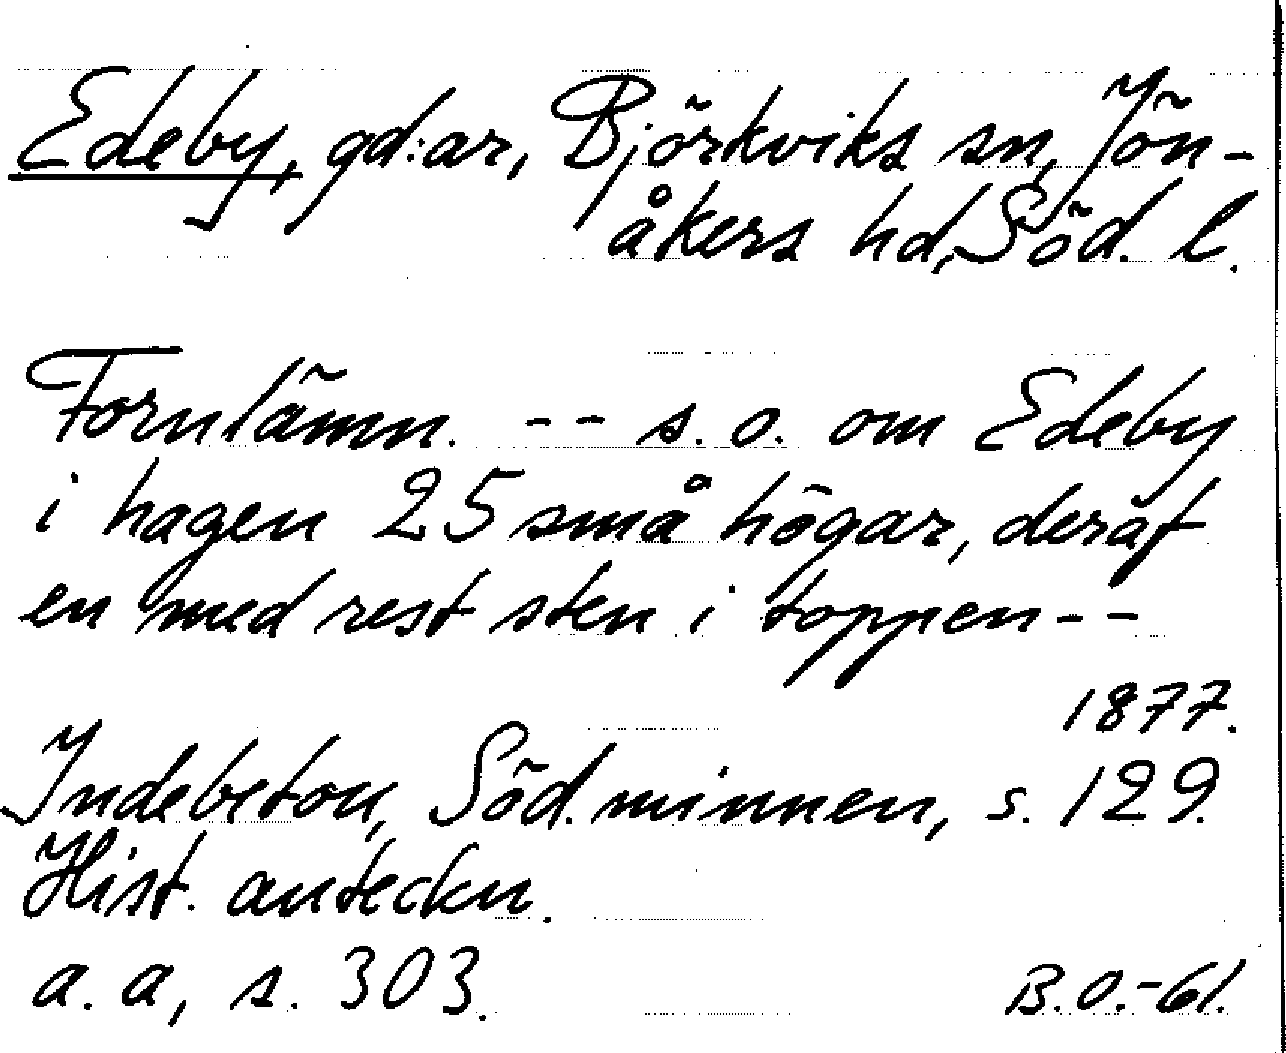 Edeby, gd:ar, Björkviks sn, Jön-
åkers hd, Söd. l.
Fornlämn. -- s. o. om Edeby
i hagen 25 små högar, deraf
en med rest sten i toppen--
1877.
Indebetou, Söd. minnen, s. 129.
Hist. anteckn.
a. a, s. 303.
B.O.-61.